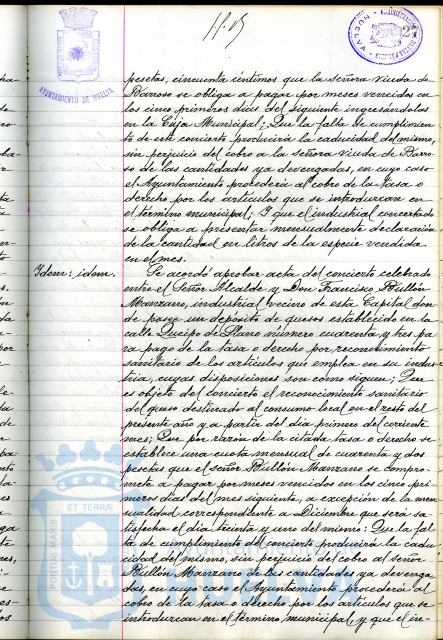 AYUNTAMIENTO DE HUELVA
pesetas, cincuenta céntimos que la señora viuda de
Barroso se obliga a pagar por meses vencidos en
los cinco primeros dias del siguiente ingresándolos
en la Caja Municipal; Que la falta de cumplimien-
to de este concierto producirá la caducidad del mismo,
sin perjuicio del cobro a la señora viuda de Barro-
so de las cantidades ya devengadas, en cuyo caso
el Ayuntamiento procederá al cobro de la tasa o
derecho por los artículos que se introduzcan en
el término municipal; Y que el industrial concertado
se obliga a presentar mensualmente declaración
de la cantidad en litros de la especie vendida
en el mes.
Idem: idem.
Se acordó aprobar acta del concierto celebrado
entre el Señor Alcalde y Don Francisco Bullón
Manzano, industrial vecino de esta Capital don-
de posee un depósito de quesos establecido en la
calle Queipo de Llano número cuarenta y tres pa-
ra pago de la tasa o derecho por reconocimiento
sanitario de los artículos que emplea en su indus-
tria, cuyas disposiciones son como siguen; Que
es objeto del concierto el reconocimiento sanitario
del queso destinado al consumo local en el resto del
presente año y a partir del dia primero del corriente
mes; Que por razón de la citada tasa o derecho se
establece una cuota mensual de cuarenta y dos
pesetas que el señor Bullón Manzano se compro-
mete a pagar por meses vencidos en los cinco pri-
meros dias del mes siguiente, a excepción de la men-
sualidad correspondiente a Diciembre que será sa-
tisfecha el dia treinta y uno del mismo: Que la fal-
ta de cumplimiento del concierto producirá la cadu-
cidad del mismo, sin perjuicio del cobro al señor
Bullón Manzano de las cantidades ya devenga-
das en cuyo caso el Ayuntamiento procederá al
cobro de la tasa o derecho por los artículos que se
introduzcan en el término municipal, y que el in-
PORTUS MARIS ET TERRÆ
Ayuntamiento